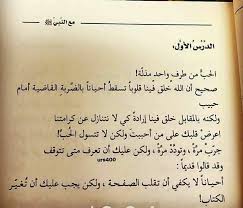 مع النّبيّ ﷺ
الدّرسُ الأوّل:
الحبُّ من طرفٍ واحد مذلّة!
صحيح أن الله خلق فينا قلوباً تسقطُ أحياناً بالضّربة القاضية أمام
حبيب
ولكنه بالمقابل خلق فينا إرادةً كي لا نتنازل عن كرامتنا
اعرضْ قلبك على من أحببت ولكن لا تتسول الحبَّ!
جرّب مرّةً، وتودّد مرّة، ولكن عليك أن تعرف متى تتوقف
urs400
وقد قالوا قديماً:
أحياناً لا يكفي أن تقلب الصفحة، ولكن يجب عليك أن تُغيّر
الكتاب!